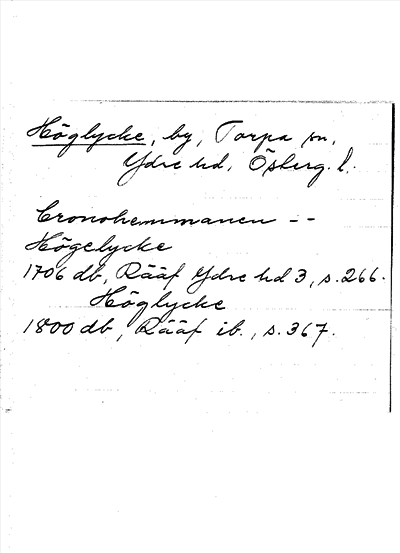 Höglycke, by, Torpa sn,
Ydre hd, Österg. l.
Cronohemmanen - -
Högelycke
1706 db, Rääf Ydre hd 3, s. 266.
Höglycke
1800 db, Rääf ib., s. 367.